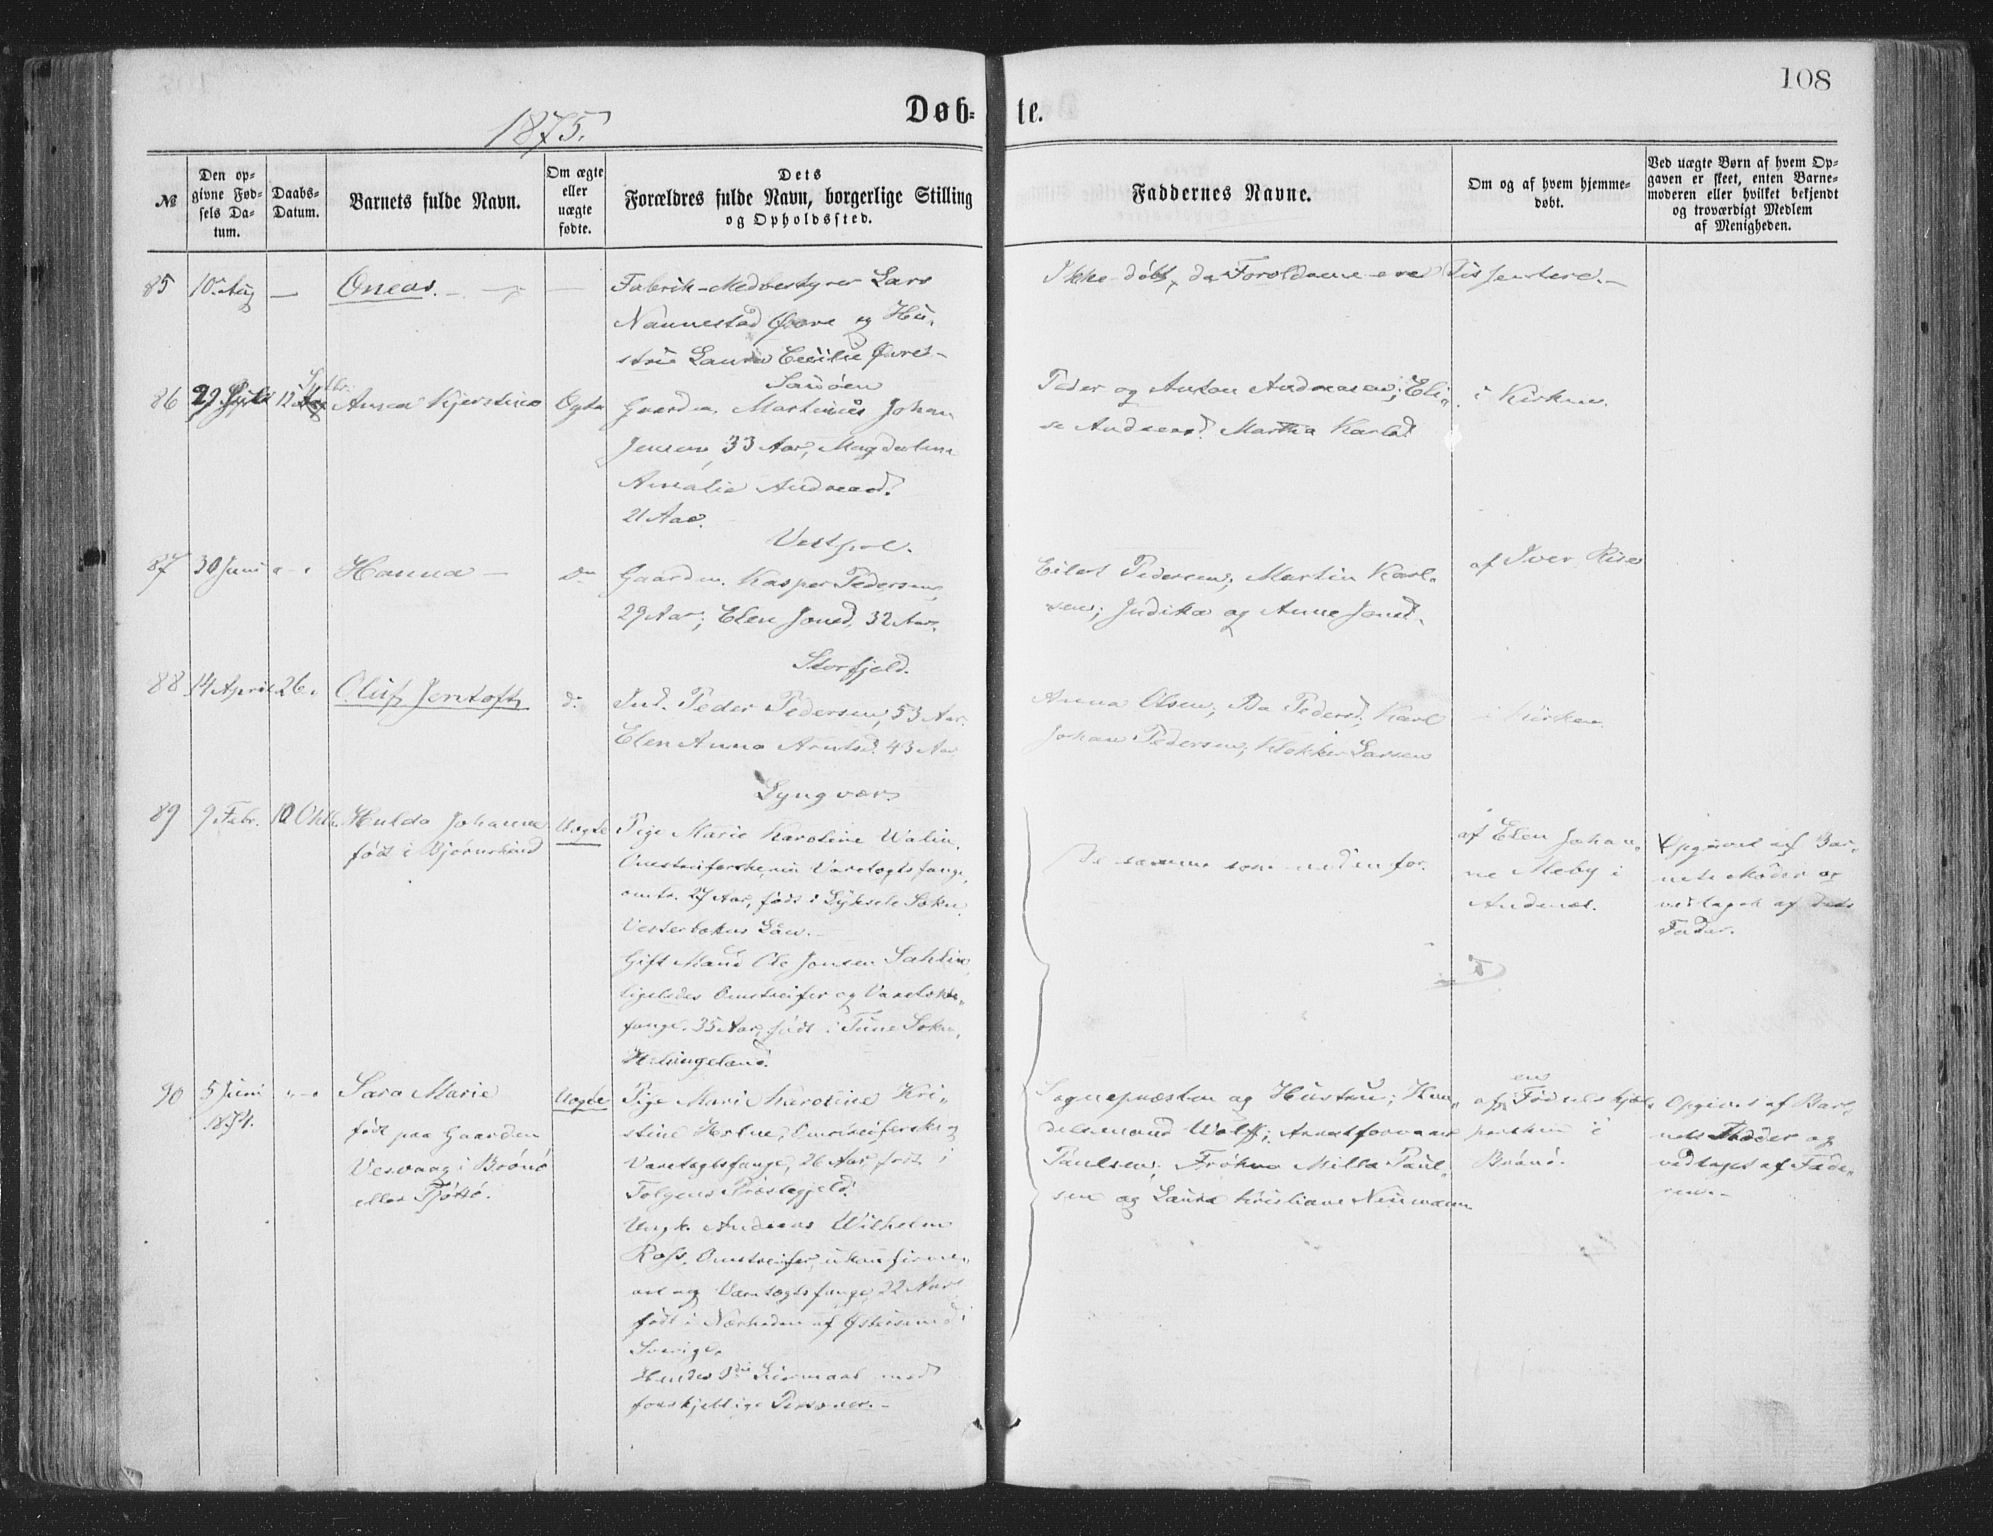 108
1875.
Døb-
te.
№
Den op-
givne Fød-
sels Da-
tum.
Daabs-
Datum.
Barnets fulde Navn.
Om ægte
eller
uægte
fødte.
Dets
Forældres fulde Navn, borgerlige Stilling
og Opholdssted.
Faddernes Navne.
Om og af hvem hjemme-
døbt.
Ved uægte Børn af hvem Op-
gaven er skeet, enten Barne-
moderen eller hvilket bekjendt
og troværdigt Medlem
af Menigheden.
85
10 Aug
—
Oneas.
—
Fabrik-Medbestyrer Lars
Nannestad Øvre og Hu-
stru Laura Cecilie Øvres-
Ikke døbt, da Foreldrene ere Dissentere.-
86
29
12
Anna Kjerstine
Ægte
Gaardm. Martinus Johan
Jensen, 33 Aar, Magdalena
Amalie Andreasd.
21 Aar.
Peder og Anton Andreasen; Eli-
se Andreasd. Martha Karlsd.
i Kirken.
87
30 Juni
Hanna —
Do
Vestpol.
Gaardm. Kasper Pedersen,
29 Aar; Elen Jonsd, 32 Aar.
Eilert Pedersen; Martin Karl-
sen; Judika og Anne Jonsd.
af Iver Riise
88
14 April
26.
Oluf Jentoft
do
Storfjeld.
Ind. Peder Pedersen, 53 Aar.
Elen Anna Arntsd. 43 Aar
Anna Olsen; Pedersd; Karl
Johan Pedersen; Klokker Larsen
i Kirken.
89
9 Febr.
10 Oktb.
Hulda Johanna
født i Bjørnskind
Uægte
Lyngvær.
Pige Marie Karoline Walin,
Omstreiferske, nu Varetægtsfange,
27 Aar, født i Lyksele Sokn,
Vesterbotns Län.
Gift Mand Ole Jonsen Sahlin,
ligeledes Omstreifer og Varetækts-
fange. 35 Aar, født i Tune Sokn,
Helsingeland.
De samme som nedenfor.
af Elen Johan-
ne Meby i
Andenæs.
Opgivet af Bar-
nets Moder og
vedtaget af dets
Fader.
90
5 Juni
1874.
Sara Marie
født paa Gaarden
Vesvaag i Brønø
eller Tjøttø.
Uægte
Pige Marie Karoline Kri-
stine Holme, Omstreiferske og
Varetægtsfange, 26 Aar, født i
Tolgens Præstegjeld.
Ungk. Andreas Wilhelm
Ross. Omstreifer, ukonfirme-
ret og Varetægtsfange, 22 Aar,
født i Nærheden af Østersund i
Sverige.
Hendes 3die Leiermaal med
forskjellige Personer.-
Sognepræsten og Hustru; Han-
delsmand Wolff; Arrestforvarer
Paulsen; Frøkne Milla Paul-
sen og Laura Kristiane Neumann
af en Fødselshjæl-
perske i
Brønø.
Opgivet af Bar-
nets Moder og
vedtaget af Fade-
ren.-